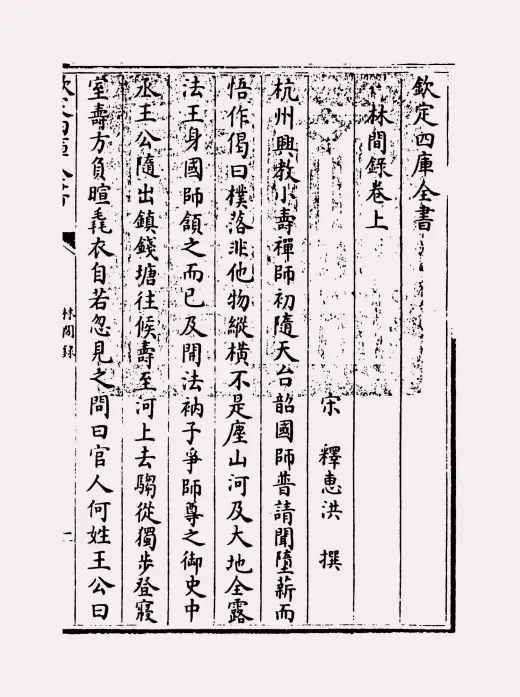 欽定四庫全書
林間錄卷上
宋 釋惠洪 撰
杭州興教小壽禪師初隨天台韶國師普請聞墮薪而
悟作偈曰樸落非他物縱橫不是塵山河及大地全露
法王身國師頷之而已及開法衲子爭師尊之御史中
丞王公隨出鎮錢塘往候壽至河上去騶從獨步登寢
室壽方負暄毳衣自若忽見之問曰官人何姓王公曰
欽定四庫全書
林間錄
一